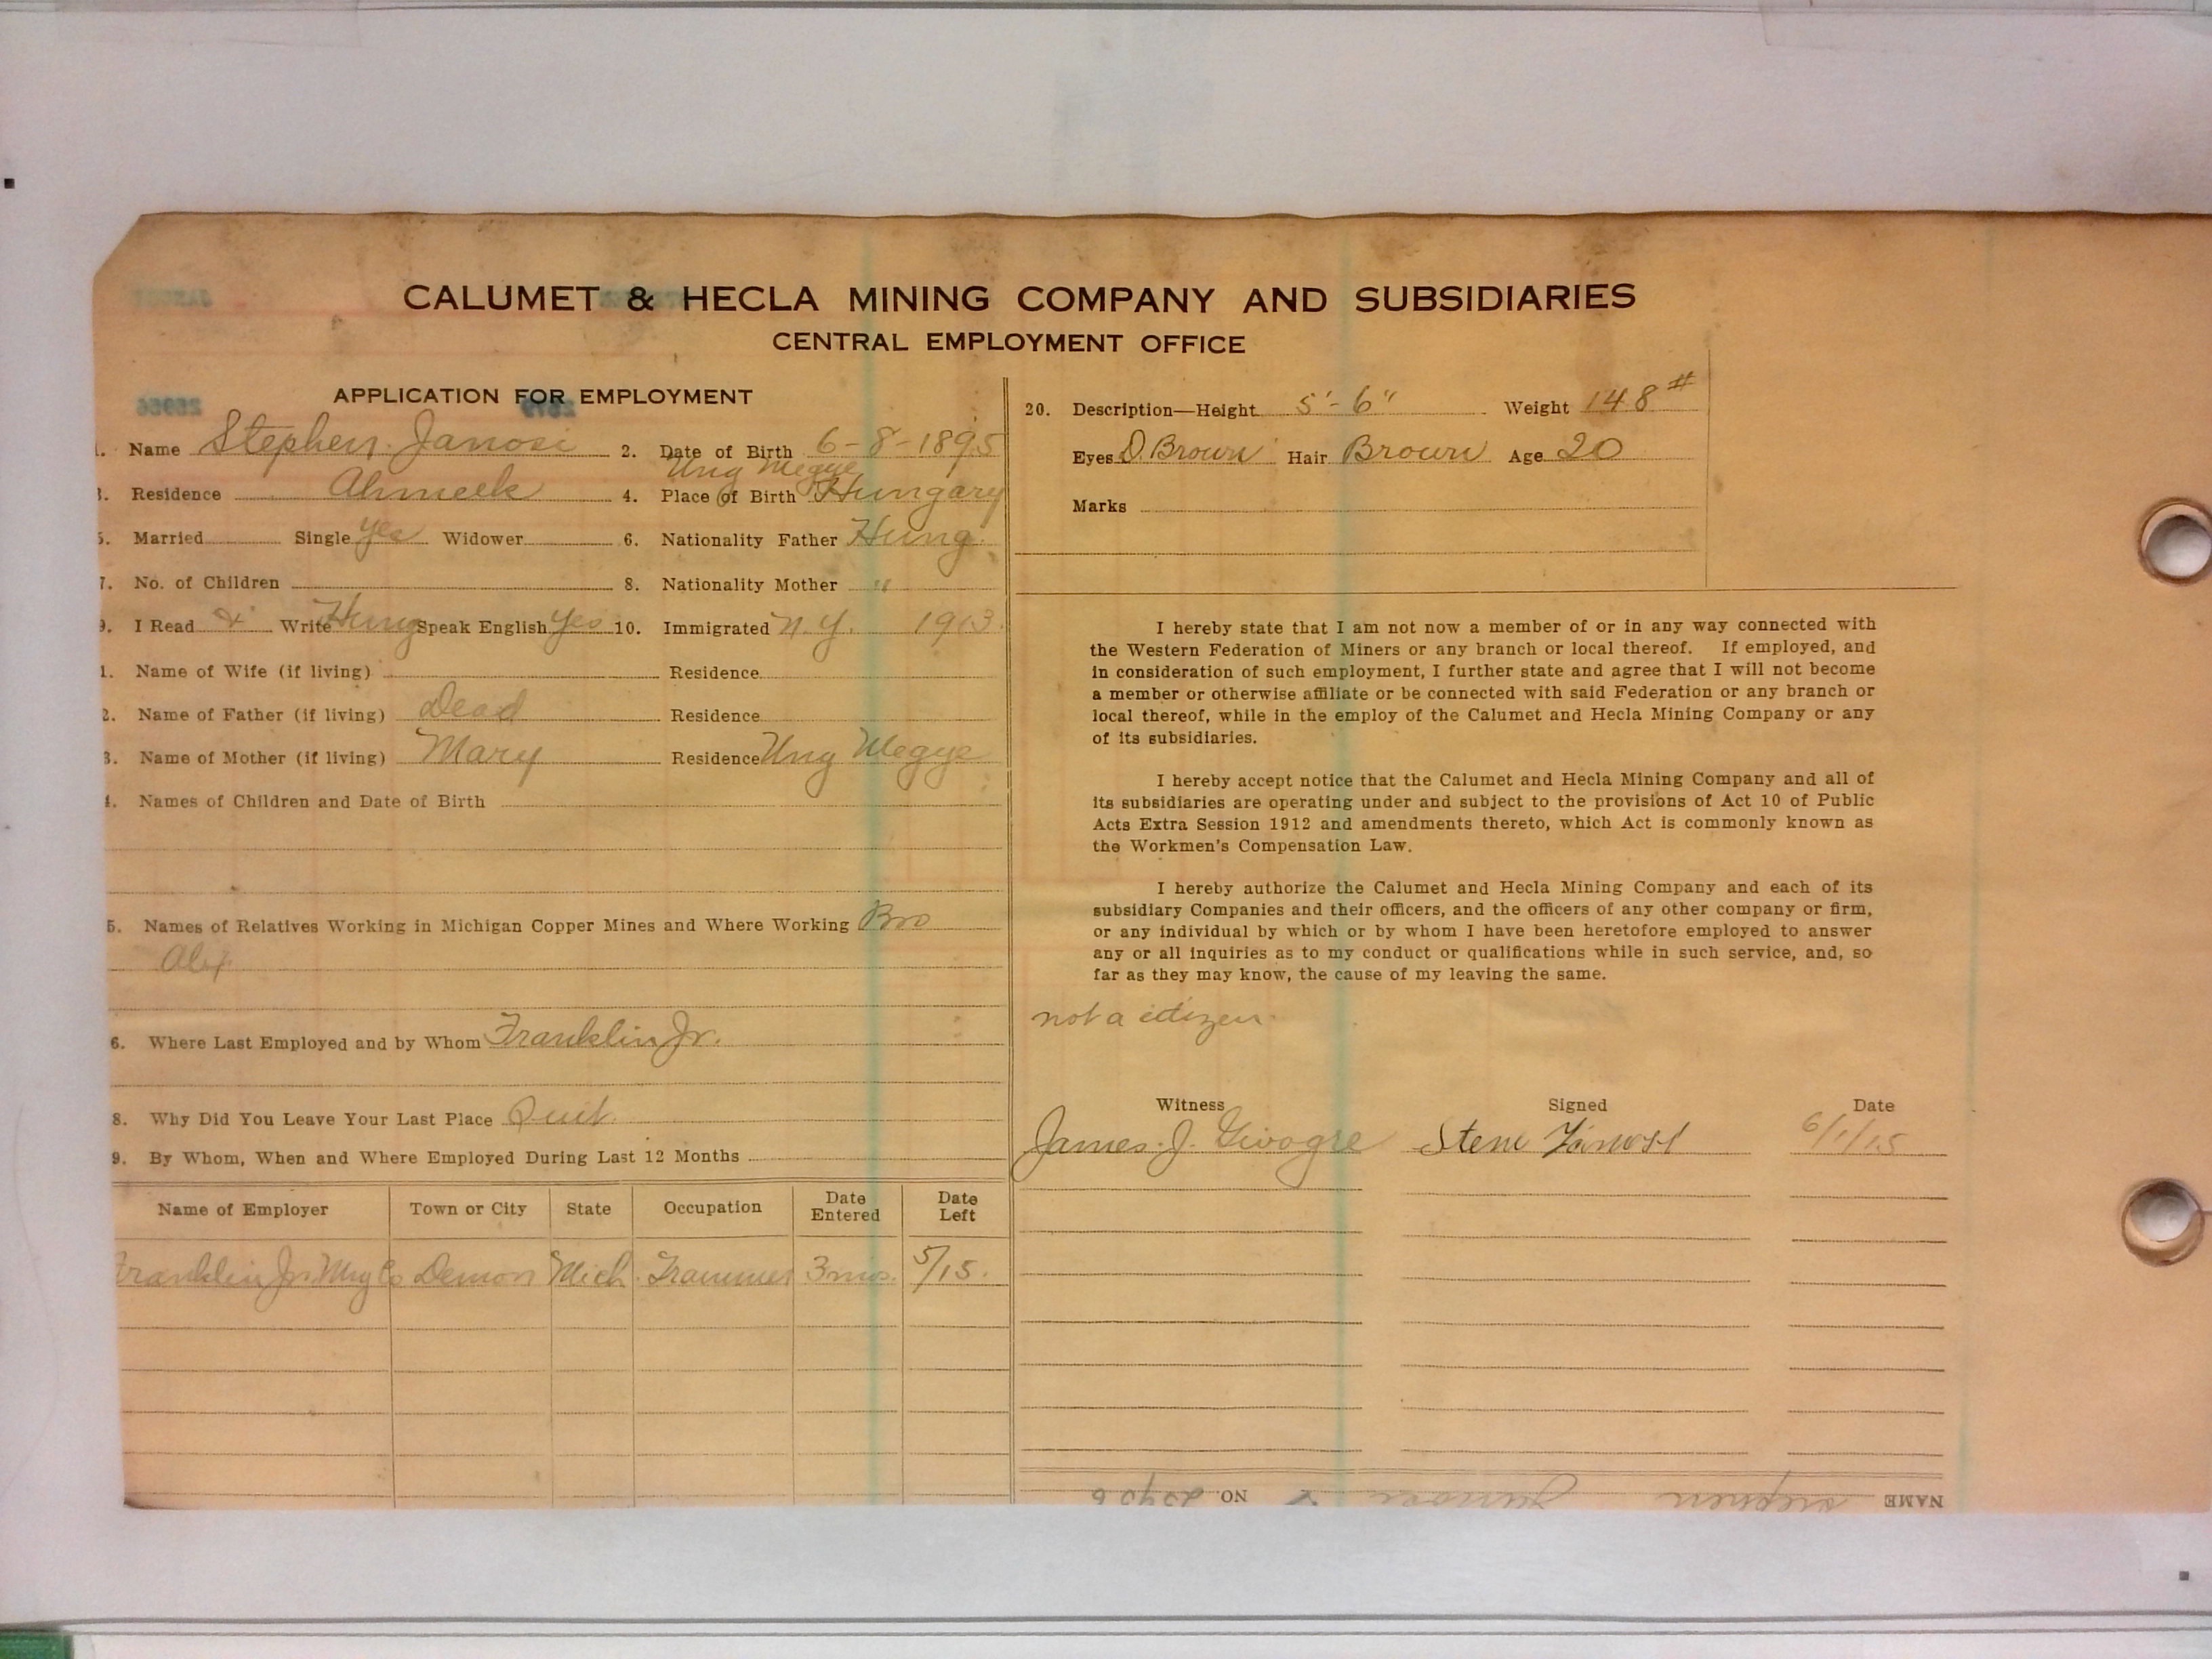 CALUMET & HECLA MINING COMPANY AND SUBSIDIARIES
CENTRAL EMPLOYMENT OFFICE
APPLICATION FOR EMPLOYMENT
1. Name Stephen Janosi 2. Date of Birth 6-8-1895
Ung Megye
3. Residence Ahmeek 4. Place of Birth Hungary
5. Married Single yes Widower 6. Nationality Father Hung.
7. No. of Children 8. Nationality Mother "
9. I Read & Write Hung Speak English Yes 10. Immigrated N.Y. 1913.
1. Name of Wife (if living) Residence
2. Name of Father (if living) Dead Residence
3. Name of Mother (if living) Mary Residence Ung Megye
4. Names of Children and Date of Birth
5. Names of Relatives Working in Michigan Copper Mines and Where Working Bro
Alex
6. Where Last Employed and by Whom Franklin Jr.
8. Why Did You Leave Your Last Place Quit.
9. By Whom, When and Where Employed During Last 12 Months
Name of Employer Town or City State Occupation Date Entered Date Left
Franklin Jr. Mng Co Demon Mich. Trammer 3 mos. 5/15.
20. Description—Height 5'-6" Weight 148#
Eyes D. Brown Hair Brown Age 20
Marks
I hereby state that I am not now a member of or in any way connected with
the Western Federation of Miners or any branch or local thereof. If employed, and
in consideration of such employment, I further state and agree that I will not become
a member or otherwise affiliate or be connected with said Federation or any branch or
local thereof, while in the employ of the Calumet and Hecla Mining Company or any
of its subsidiaries.
I hereby accept notice that the Calumet and Hecla Mining Company and all of
its subsidiaries are operating under and subject to the provisions of Act 10 of Public
Acts Extra Session 1912 and amendments thereto, which Act is commonly known as
the Workmen's Compensation Law.
I hereby authorize the Calumet and Hecla Mining Company and each of its
subsidiary Companies and their officers, and the officers of any other company or firm,
or any individual by which or by whom I have been heretofore employed to answer
any or all inquiries as to my conduct or qualifications while in such service, and, so
far as they may know, the cause of my leaving the same.
not a citizen.
Witness Signed Date
James. J. 6/1/15
NAME Stephen Janosi NO. 25956